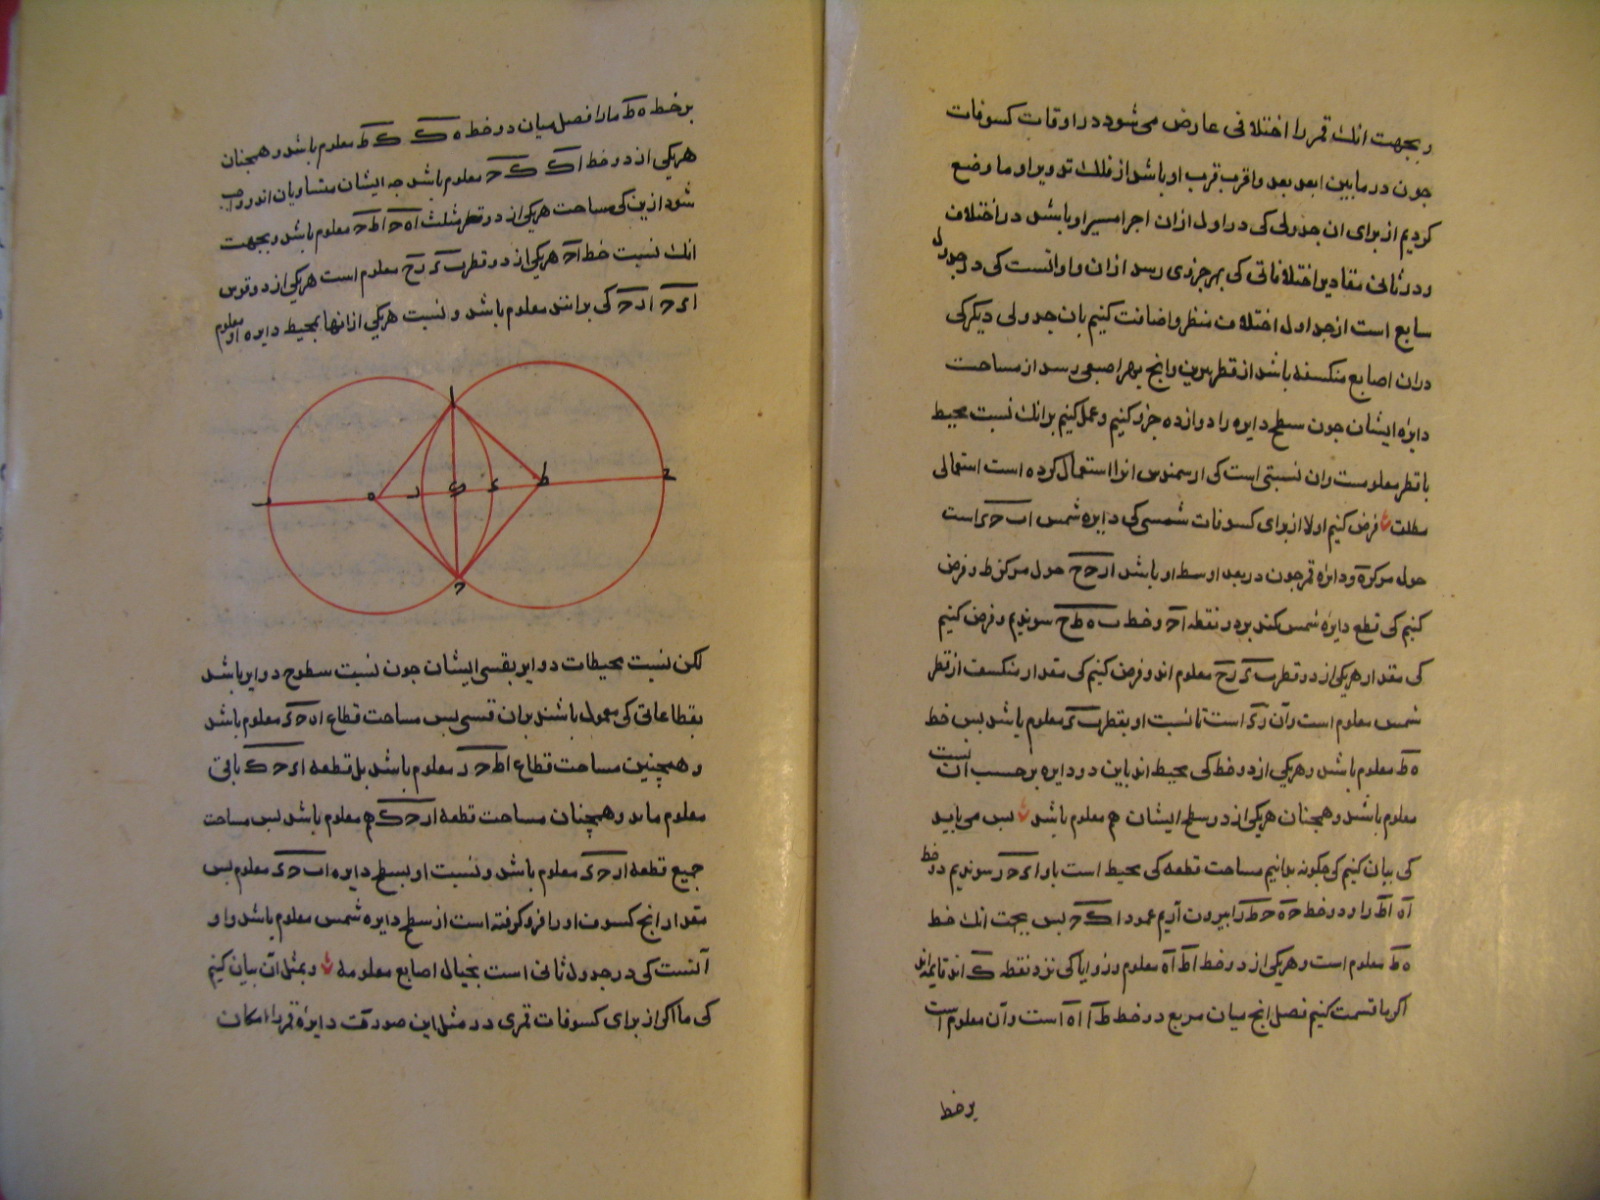 و بجهت انك قمر را اختلافی عارض می‌شود در اوقات كسوفات
جون در ما بین ابعد بعد و اقرب قرب او باشد از فلك تدویر او ما وضع
كردیم از برای ان جدولی كی در اول از ان اجرا مسیر او باشد در اختلاف
و در ثانی مقادیر اختلافاتی كی بهر جزدی رسد از ان و او انست كی در جدول
سابع است از جداول اختلاف منظر و اضافت كنیم بان جدولی دیكر كی
در ان اصابع منكسفه باشد از قطر نیرین و انج بهر اصبعی رسد از مساحت
دایرهٔ ایشان جون سطح دایره را دوازده جزو كنیم و عمل كنیم بر انك نسبت محیط
با قطر معلومست و ان نسبتی است كی ارسمندس انرا استعمال كرده است استعمالی
مطلت فرض كنیم اولا از برای كسوفات شمسی كی دایره شمس اب حء است
حول مركز ه و دایرهٔ قمر جون در بعد اوسط او باشد ار حح حول مركز ط و فرض
كنیم كی قطع دایرهٔ شمس كند بر دو نقطه اح و خط ب ه ط ح سوندیم و فرض كنیم
كی مقدار هریكی از دو قطر بء رح معلوم اند و فرض كنیم كی مقدار منكسف از قطر
شمس معلوم است و آن رء است تا نسبت او بقطر بء معلوم باشد بس خط
ه ط معلوم باشد و هریكی از دو خط كی محیط اند باین دو دایره بر حسب آن نسبت
معلوم باشند و همجنان هریكی از دو سطح ایشان هم معلوم باشد بس می‌باید
كی بیان كنیم كی جكونه بدانیم مساحت قطعه كی محیط است باو اء حر سوندیم دو خط
آه اط را و دو خط حه حط را و بیرون آریم عمود اك ح بس بجهت انك خط
ه ط معلوم است و هریكی از دو خط اط آه معلوم و زوایا كی نزد نقطه ك اند قایمه اند
اكر ما قسمت كنیم فصل انج میان مربع دو خط ط آ اه است و آن معلوم است
بر خط
بر خط ه ط ما را فصل میان دو خط ه ك ك ط معلوم باشد و همجنان
هریكی از دو خط اك ك ح معلوم باشد جه ایشان متساویان اند و واجب
شود ازین كی مساحت هریكی از دو مثلث اه ح اط ح معلوم باشد و بجهت
انك نسبت خط اح هریكی از دو قطر بء رح معلوم است هریكی از دو قوس
اء ح ار ح كی بر انند معلوم باشد و نسبت هریكی از انها بمحیط دایره او معلوم
ا
ب ه ر ك ء ط ح
ح
لكن نسبت محیطات دوایر بقسی ایشان جون نسبت سطوح دوایر باشد
بقطاعاتی كی معمول باشند بر ان قسی بس مساحت قطاع اه حء معلوم باشد
و همچنین مساحت قطاع اط ح ر معلوم باشد بل قطعه اء ح ك باقی
معلوم ماند و همچنان مساحت قطعه ار ح ك هم معلوم باشد بس مساحت
جمیع قطعه ار حء معلوم باشد و نسبت او بسطح دایره اب حء معلوم بس
مقدار انج كسوف او را فرو كرفته است از سطح دایره شمس معلوم باشد و او
آنست كی در جدول ثانی است بخیال اصابع معلومه و بمثل آن بیان كنیم
كی ما اكی از برای كسوفات قمری در مثل این صورت دایرهٔ قمر را امكان